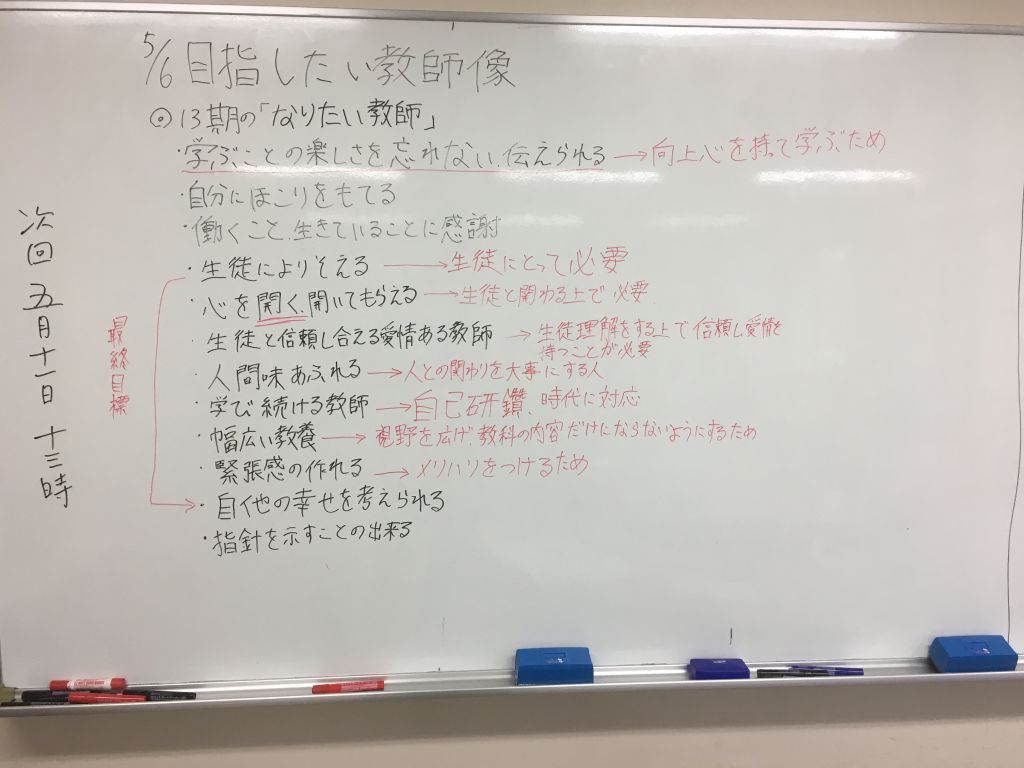 5/6 目指したい教師像
◎13期の「なりたい教師」
・学ぶことの楽しさを忘れない、伝えられる→向上心を持って学ぶため
・自分にほこりをもてる
・働くこと、生きていることに感謝
・生徒によりそえる→生徒にとって必要
・心を開く、開いてもらえる→生徒と関わる上で必要
・生徒と信頼し合える愛情ある教師→生徒理解をする上で信頼し愛情を
持つことが必要
・人間味あふれる→人との関わりを大事にする人
・学び続ける教師→自己研鑽、時代に対応
・幅広い教養→視野を広げ、教科の内容だけにならないようにするため
・緊張感の作れる→メリハリをつけるため
・自他の幸せを考えられる
・指針を示すことの出来る
最終目標
次回 五月十一日 十三時